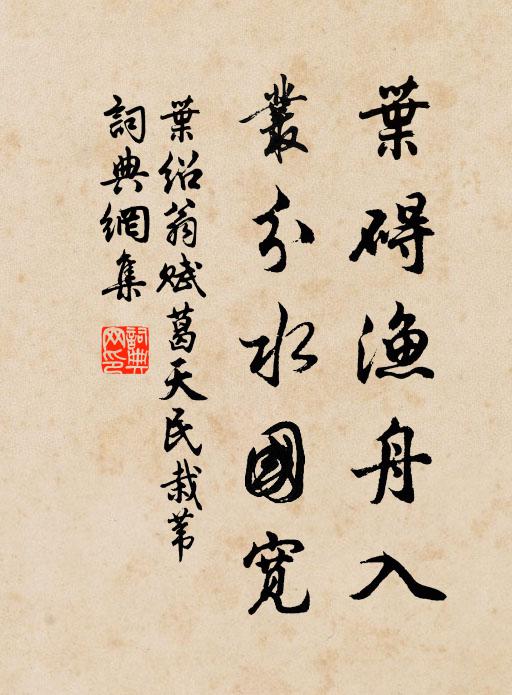 葉碍漁舟入
叢分水國寬
葉紹翁賦葛天民栽葦
詞典網集
詞典网印